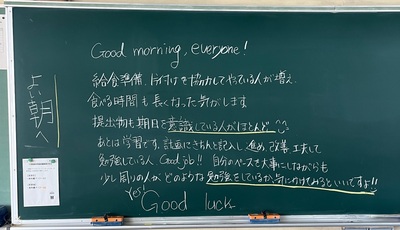 よい朝へ
Good morning, everyone!
給食準備、片付けを協力してやっている人が増え、
食べる時間も長くなった気がします
提出物も期日を意識している人がほとんど
あとは学習です。計画にきちんと記入し進め、改善工夫して
勉強している人 Good job!! 自分のペースを大事にしながらも
少し周りの人がどのような勉強をしているか気に付けてみるといいですよ!!
Yes!
Good luck